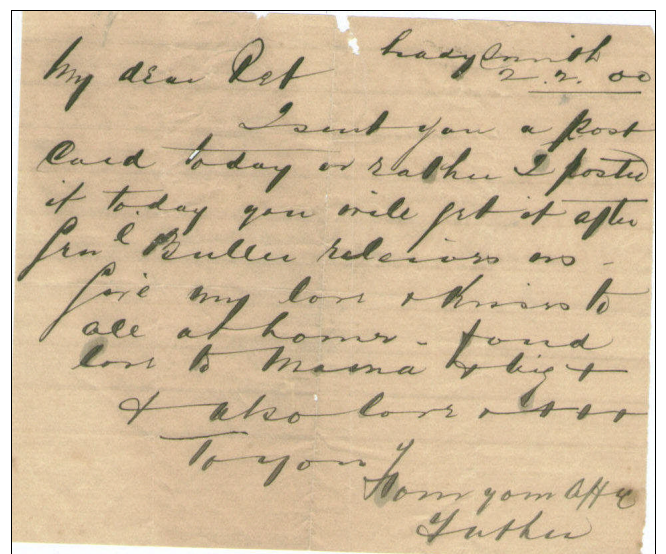 Ladysmith
My dear Pet 2.2.00
I sent you a post
Card today or rather I posted
it today you will get it after
Genl. Buller relieves us -
Give my love & Kisses to
all at home - fond
love to Mama & big +
& also love & + + +
To you
From your Affte
Father